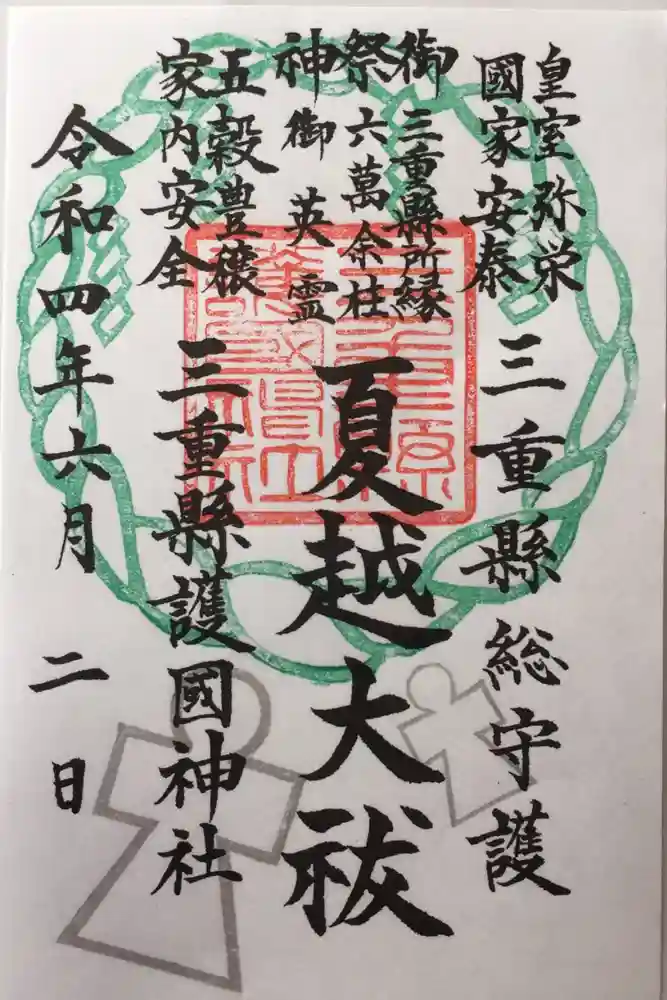 皇室弥栄
國家安泰
三重縣総守護
御祭神
三重縣所縁
六萬余柱
御英霊
夏越大祓
五穀豊穣
家内安全
三重縣護國神社
令和四年六月二日